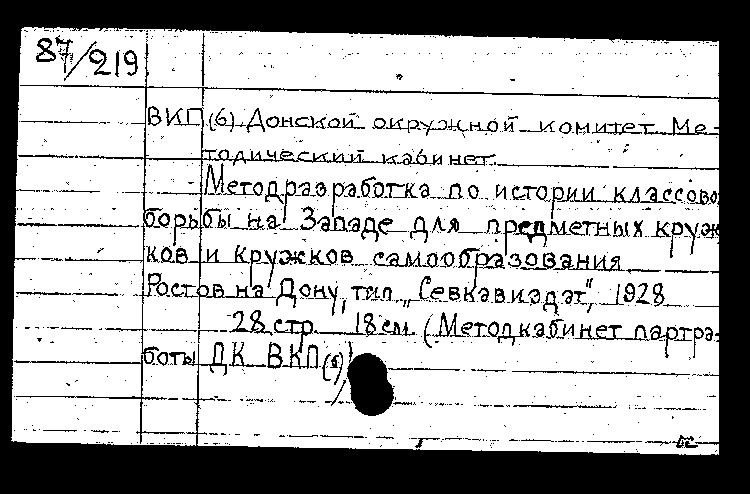 87/219
ВКП(б). Донской окружной комитет. Ме-
тодический кабинет.
Методразработка по истории классово
борьбы на Западе для предметных круж
ков и кружков самообразования
Ростов на Дону, тип. "Севкавиздат", 1928
28 стр. 18 см. (Методкабинет партра-
боты ДК ВКП(б))